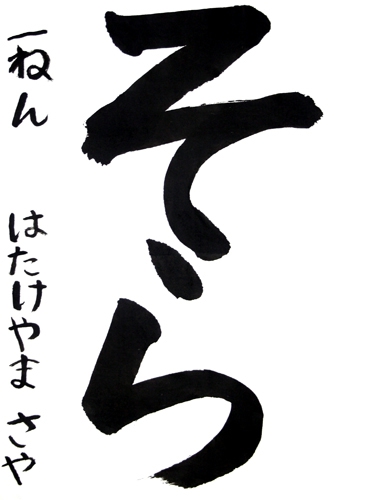 そら
一ねん はたけやま さや